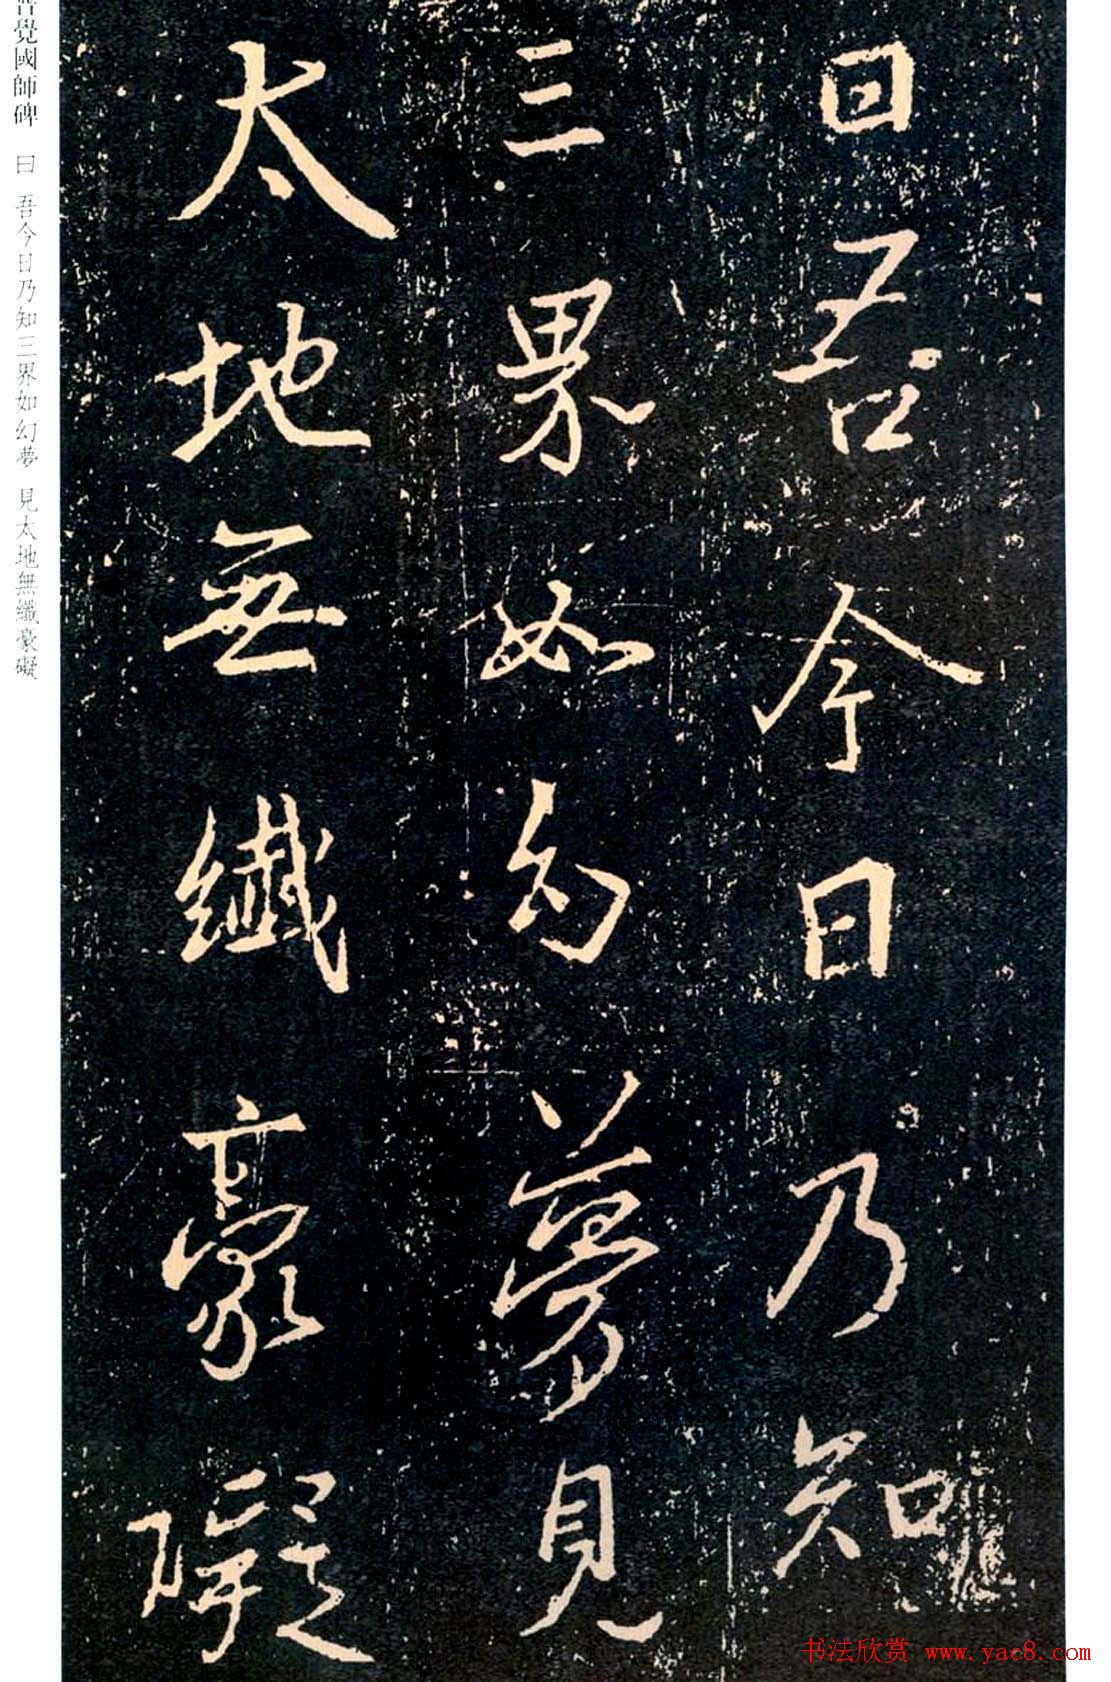 曰吾今日乃知
三界如幻夢見
太地無纖豪礙
普覺國師碑 曰 吾今日乃知三界如幻夢 見太地無纖豪礙
书法欣赏 www.yac8.com